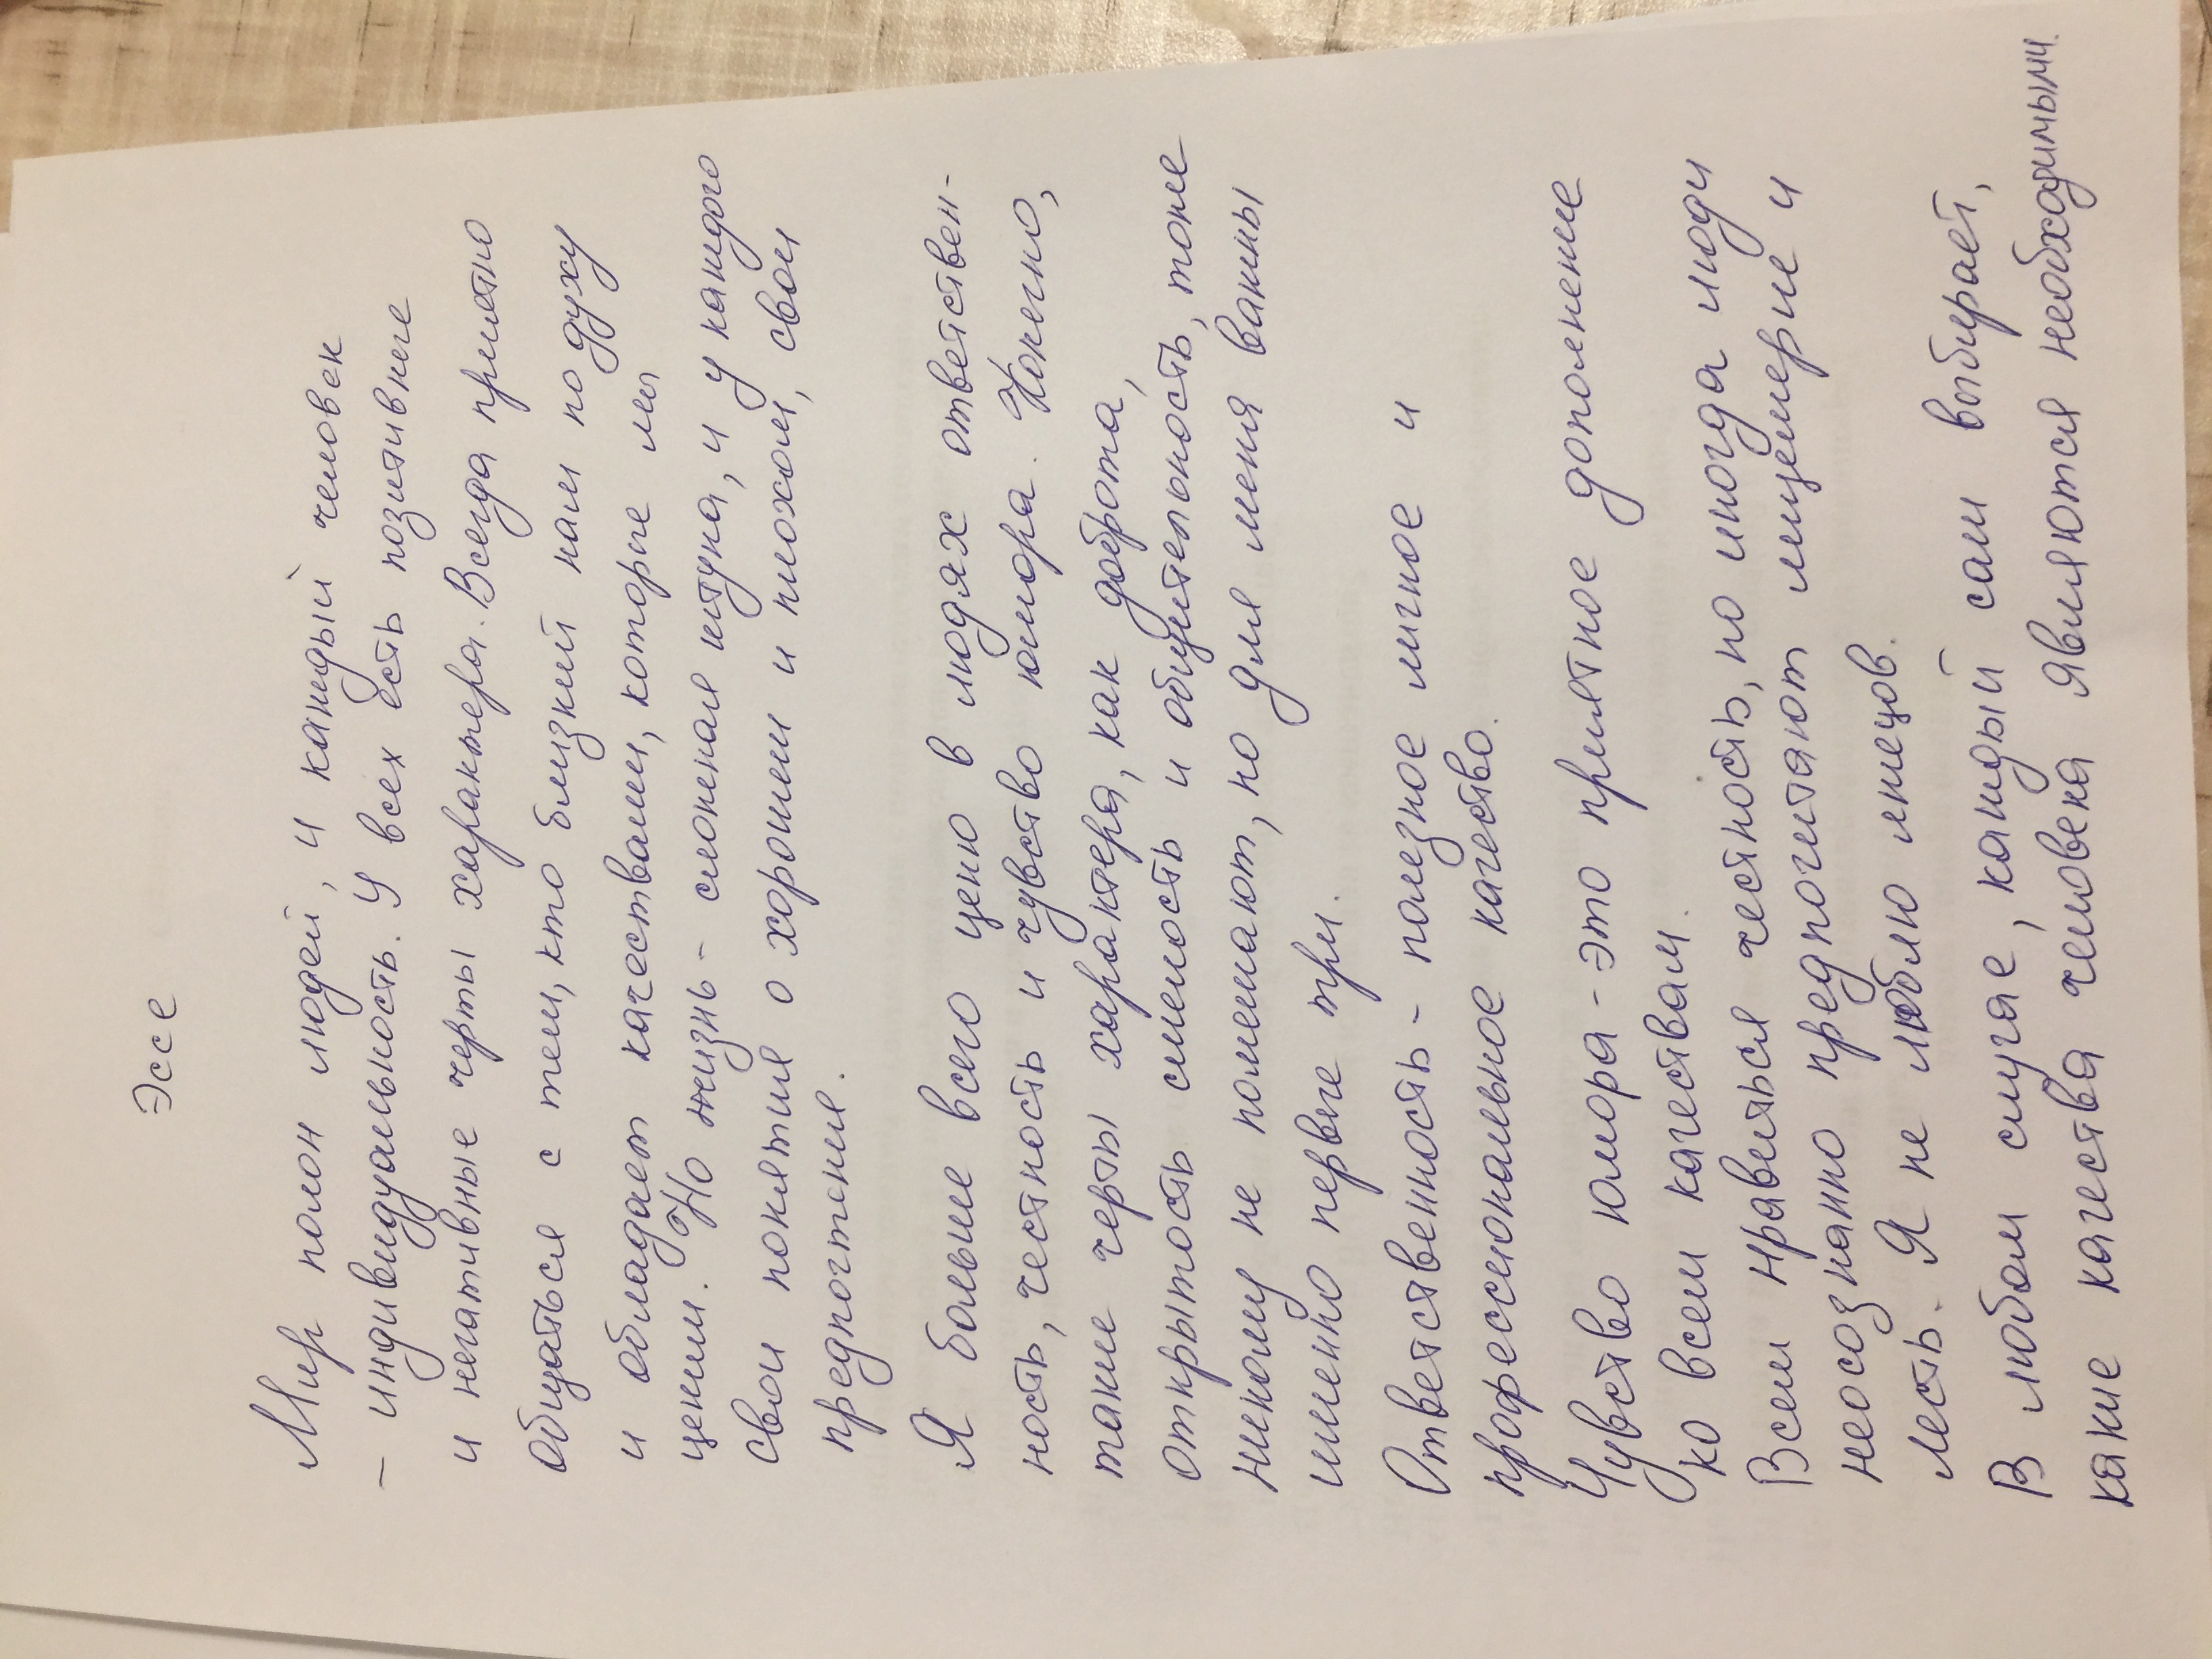 Эссе
Мир полон людей, и каждый человек
- индивидуальность. У всех есть позитивные
и негативные черты характера. Всегда приятно
общаться с тем, кто близкий нам по духу
и обладает качествами, которые мы
ценим. Но жизнь - сложная штука, и у каждого
свои понятия о хорошем и плохом, свои
предпочтения.
Я больше всего ценю в людях ответствен-
ность, честность и чувство юмора. Конечно,
такие черты характера, как доброта,
открытость смелость и общительность, тоже
никому не помешают, но для меня важны
именно первые три.
Ответственность - полезное личное и
профессиональное качество.
Чувство юмора - это приятное дополнение
ко всем качествам.
Всем нравиться честность, но иногда люди
неосознанно предпочитают лицемерие и
лесть. Я не люблю лжецов.
В любом случае, каждый сам выбирает,
какие качества человека являются необходимыми.